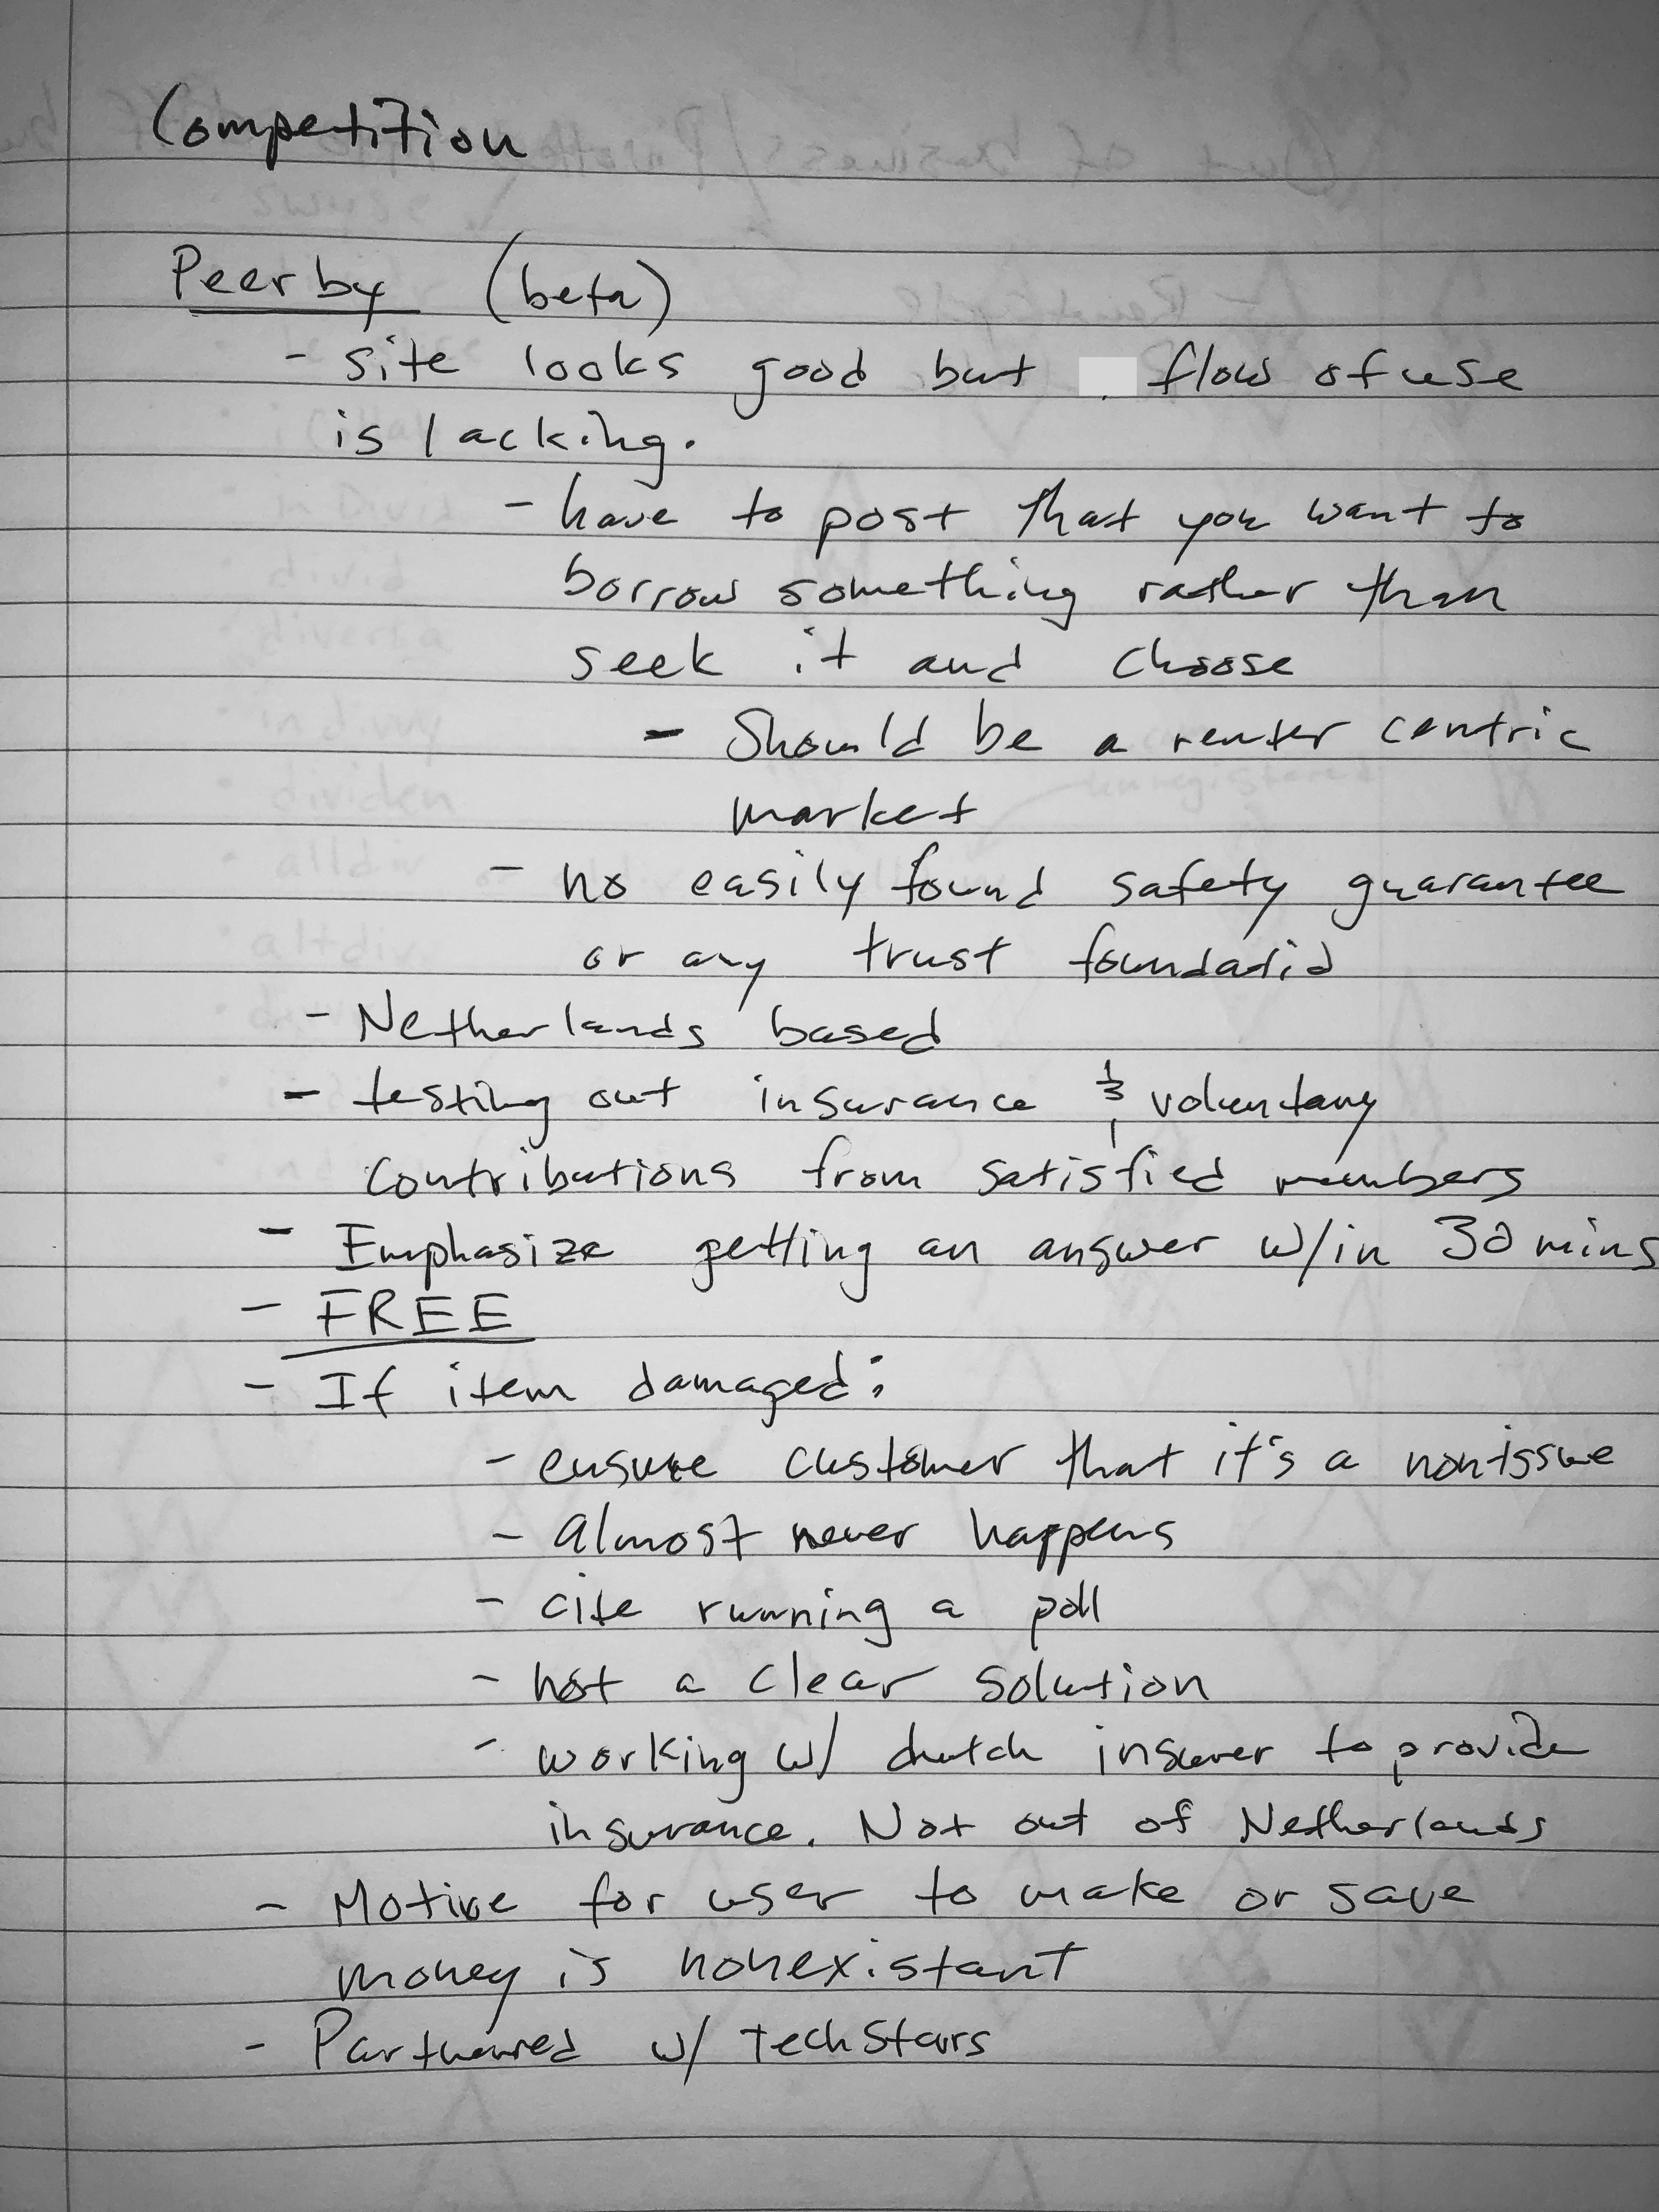 Competition
Peerby (beta)
- site looks good but flow of use
is lacking.
- have to post that you want to
borrow something rather than
seek it and choose
- Should be a renter centric
market
- no easily found safety guarantee
or any trust foundatid
- Netherlands based
- testing out insurance & voluntary
contributions from satisfied members
- Emphasize getting an answer w/in 30 mins
- FREE
- If item damaged:
- ensure customer that it's a nonissue
- almost never happens
- cite running a poll
- not a clear solution
- working w/ dutch insurer to provide
insurance. Not out of Netherlands
- Motive for user to make or save
money is nonexistant
- Partnered w/ TechStars